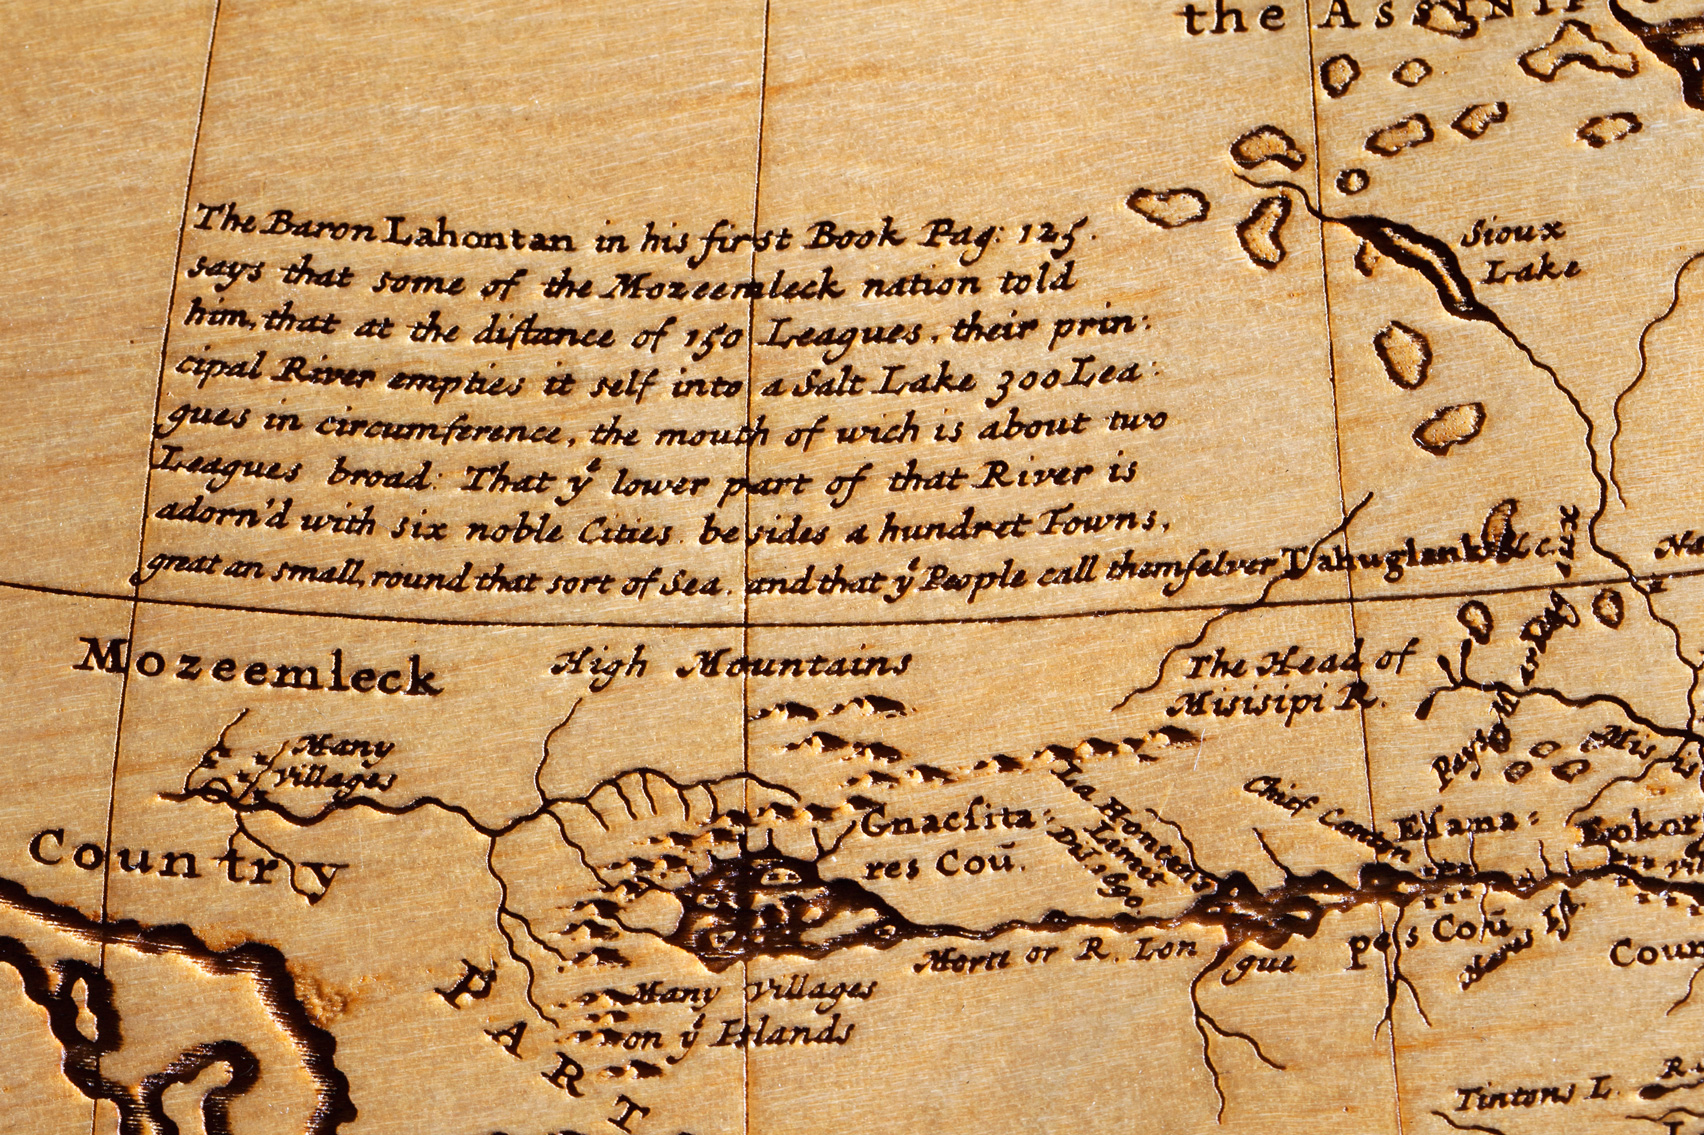 the ASSINI
The Baron Lahontan in his first Book Pag: 125.
says that some of the Mozeemleck nation told
him, that at the distance of 150 Leagues, their prin:
cipal River empties it self into a Salt Lake 300 Lea:
gues in circumference, the mouth of wich is about two
Leagues broad: That yᵉ lower part of that River is
adorn'd with six noble Cities besides a hundret Towns,
great an small, round that sort of Sea, and that yᵉ People call themselves Tahuglank &c.
Sioux
Lake
Mozeemleck
Country
High Mountains
Many
Villages
The Head of
Misisipi R.
Gnacsita:
res Coũ.
La Hontens
Limit
Chief Canton
Esana:
pe s Coũ
Eokor
Mis
Morte or R. Lon
gue
Many Villages
on yᵉ Islands
PART
Coun
Tintons L.
R.